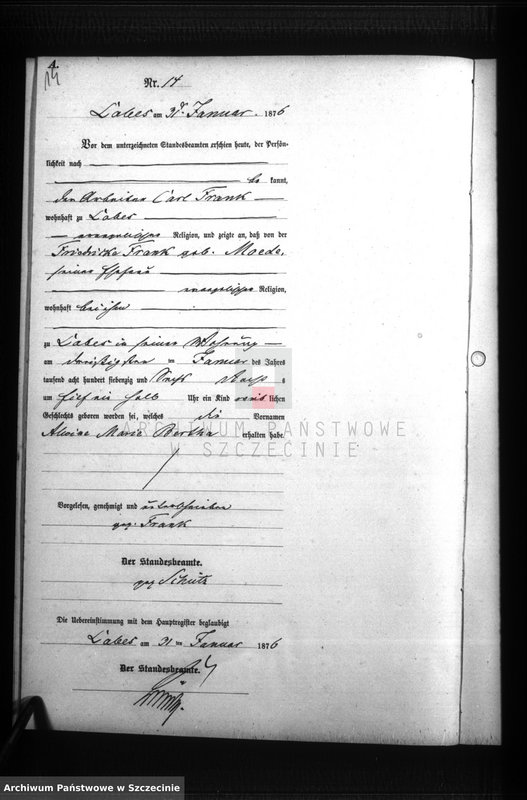 4.
14
Nr. 14
Labes am 31 Januar 1876
Vor dem unterzeichneten Standesbeamten erschien heute, der Persön-
lichkeit nach
be kannt,
den Arbeiter Carl Frank
wohnhaft zu Labes
evangelischer Religion, und zeigte an, daß von der
Friedricke Frank geb. Moede,
seiner Ehefrau
evangelischer Religion,
wohnhaft bei ihm
zu Labes in seiner Wohnung
am dreißigsten ten Januar des Jahres
tausend acht hundert siebenzig und sechs Nachts
um Uhr ein Kind weib lichen
Geschlechts geboren worden sei, welches die Vornamen
Alwine Marie Bertha erhalten habe.
ARCHIWUM PAŃSTWOWE
W SZCZECINIE
Vorgelesen, genehmigt und unterschrieben
gez. Frank
Der Standesbeamte.
gez Schütz
Die Uebereinstimmung mit dem Hauptregister beglaubigt
Labes am 31 ten Januar 1876
Der Standesbeamte.
Archiwum Państwowe w Szczecinie